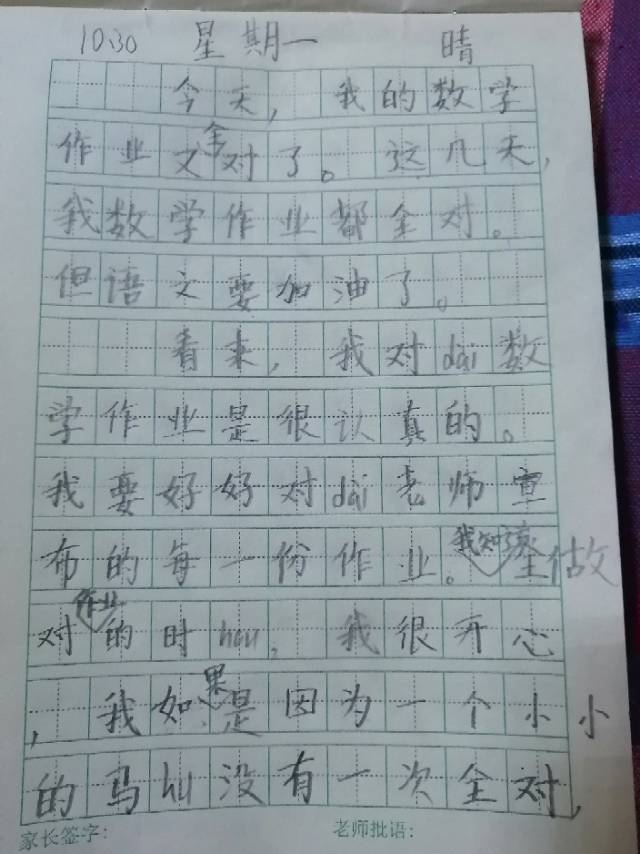 10.30 星期一 晴
今天，我的数学
作业又全对了。这几天，
我数学作业都全对。
但语文要加油了。
看来，我对dai数
学作业是很认真的。
我要好好对dai老师宣
布的每一份作业。我知 全做
对作业的时hou，我很开心
，我如果是因为一个小小
的马hu没有一次全对，
家长签字： 老师批语：